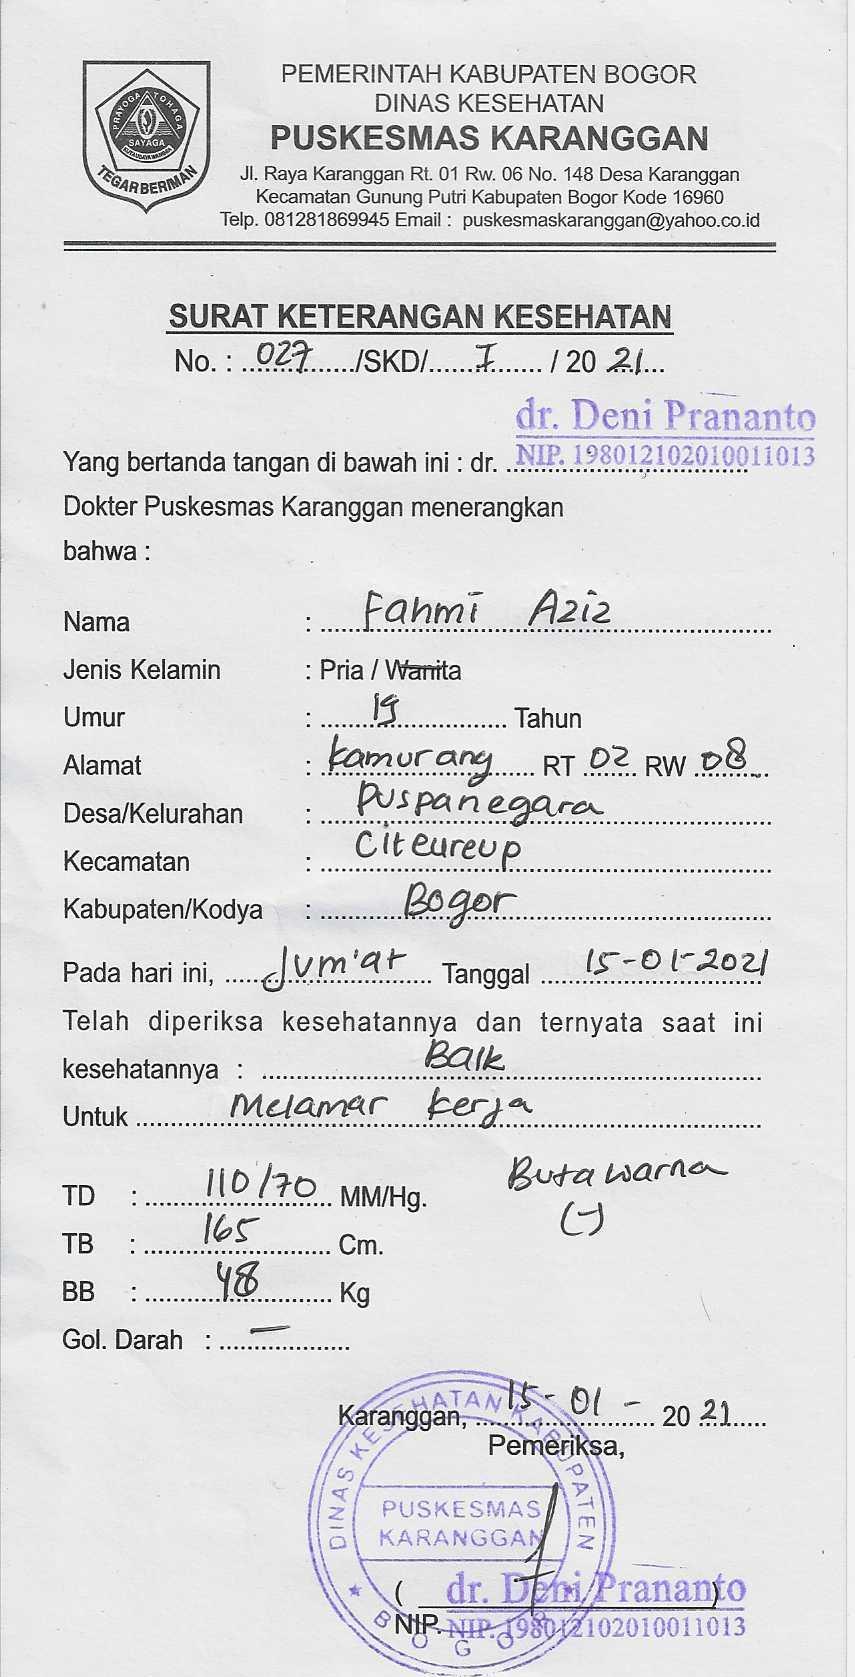 PRAYOGA TOHAGA
SAYAGA
TEGAR BERIMAN
PEMERINTAH KABUPATEN BOGOR
DINAS KESEHATAN
PUSKESMAS KARANGGAN
Jl. Raya Karanggan Rt. 01 Rw. 06 No. 148 Desa Karanggan
Kecamatan Gunung Putri Kabupaten Bogor Kode 16960
Telp. 081281869945 Email : puskesmaskaranggan@yahoo.co.id
SURAT KETERANGAN KESEHATAN
No. : 027 /SKD/ I / 20 21
dr. Deni Prananto
Yang bertanda tangan di bawah ini : dr. NIP. 198012102010011013
Dokter Puskesmas Karanggan menerangkan
bahwa :
Nama : Fahmi Aziz
Jenis Kelamin : Pria / Wanita
Umur : 19 Tahun
Alamat : Kamurang RT 02 RW 08
Desa/Kelurahan : Puspanegara
Kecamatan : Citeureup
Kabupaten/Kodya : Bogor
Pada hari ini, Jum'at Tanggal 15-01-2021
Telah diperiksa kesehatannya dan ternyata saat ini
kesehatannya : Baik
Untuk Melamar kerja
TD : 110/70 MM/Hg. Buta warna
(-)
TB : 165 Cm.
BB : 48 Kg
Gol. Darah : -
Karanggan, 15-01- 20 21
Pemeriksa,
DINAS KESEHATAN KABUPATEN
PUSKESMAS
KARANGGAN
BOGOR
( dr. Deni Prananto )
NIP. NIP. 198012102010011013